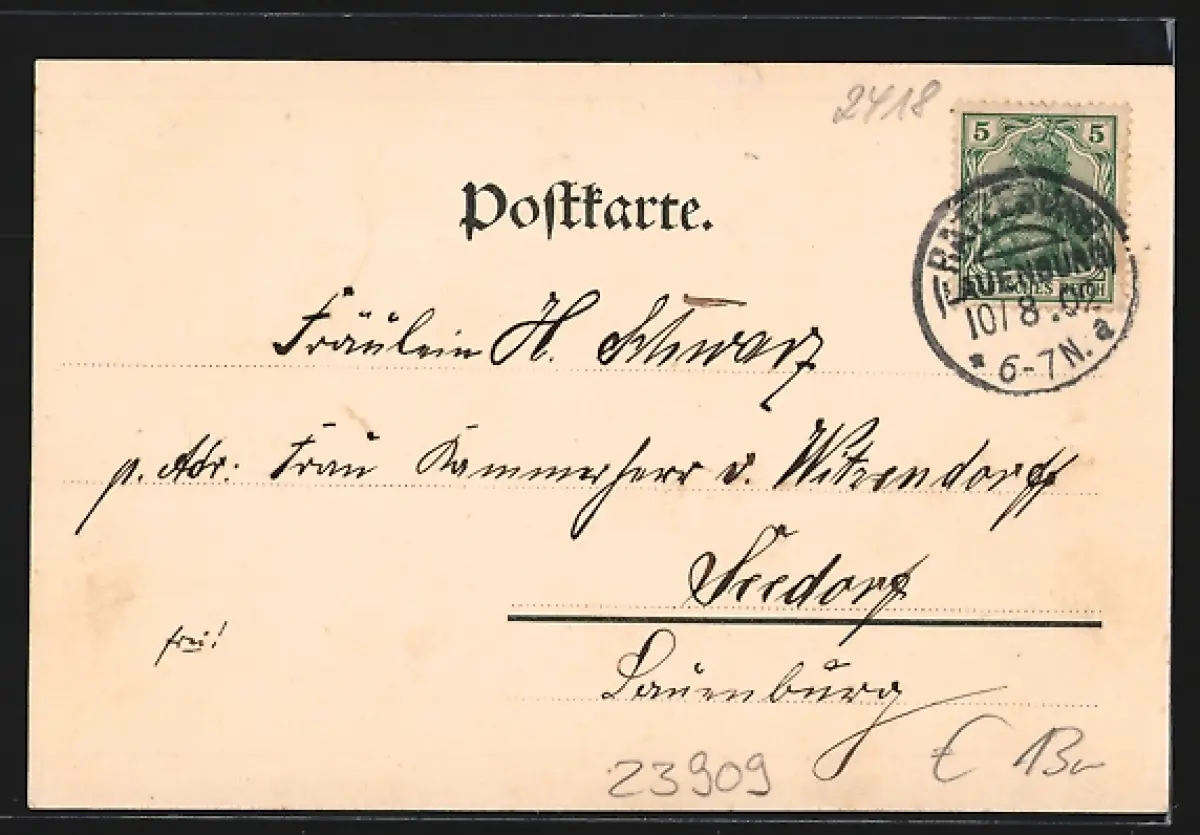 2418
5 5
Postkarte.
RATZEBURG
(LAUENBURG)
DEUTSCHES REICH
10/8.02
* 6-7N. a
Fräulein H. Schwarz
p. Adr: Frau Kammerherr v. Witzendorff
Seedorf
frei!
Lauenburg
23909